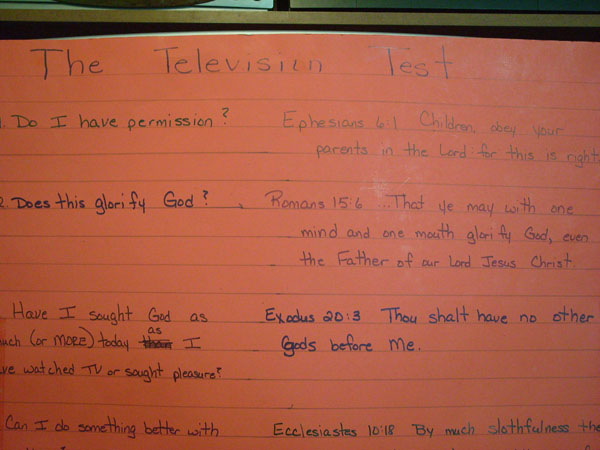 The Television Test
1. Do I have permission?
Ephesians 6:1 Children, obey your
parents in the Lord: for this is right.
2. Does this glorify God?
Romans 15:6 ...That ye may with one
mind and one mouth glorify God, even
the Father of our Lord Jesus Christ.
Have I sought God as
uch (or MORE) today as I
ve watched TV or sought pleasure?
Exodus 20:3 Thou shalt have no other
Gods before Me.
Can I do something better with
Ecclesiastes 10:18 By much slothfulness the